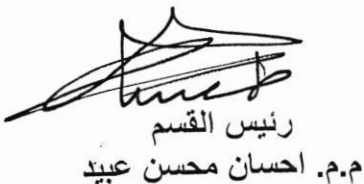 رئيس القسم
م.م. احسان محسن عبيد